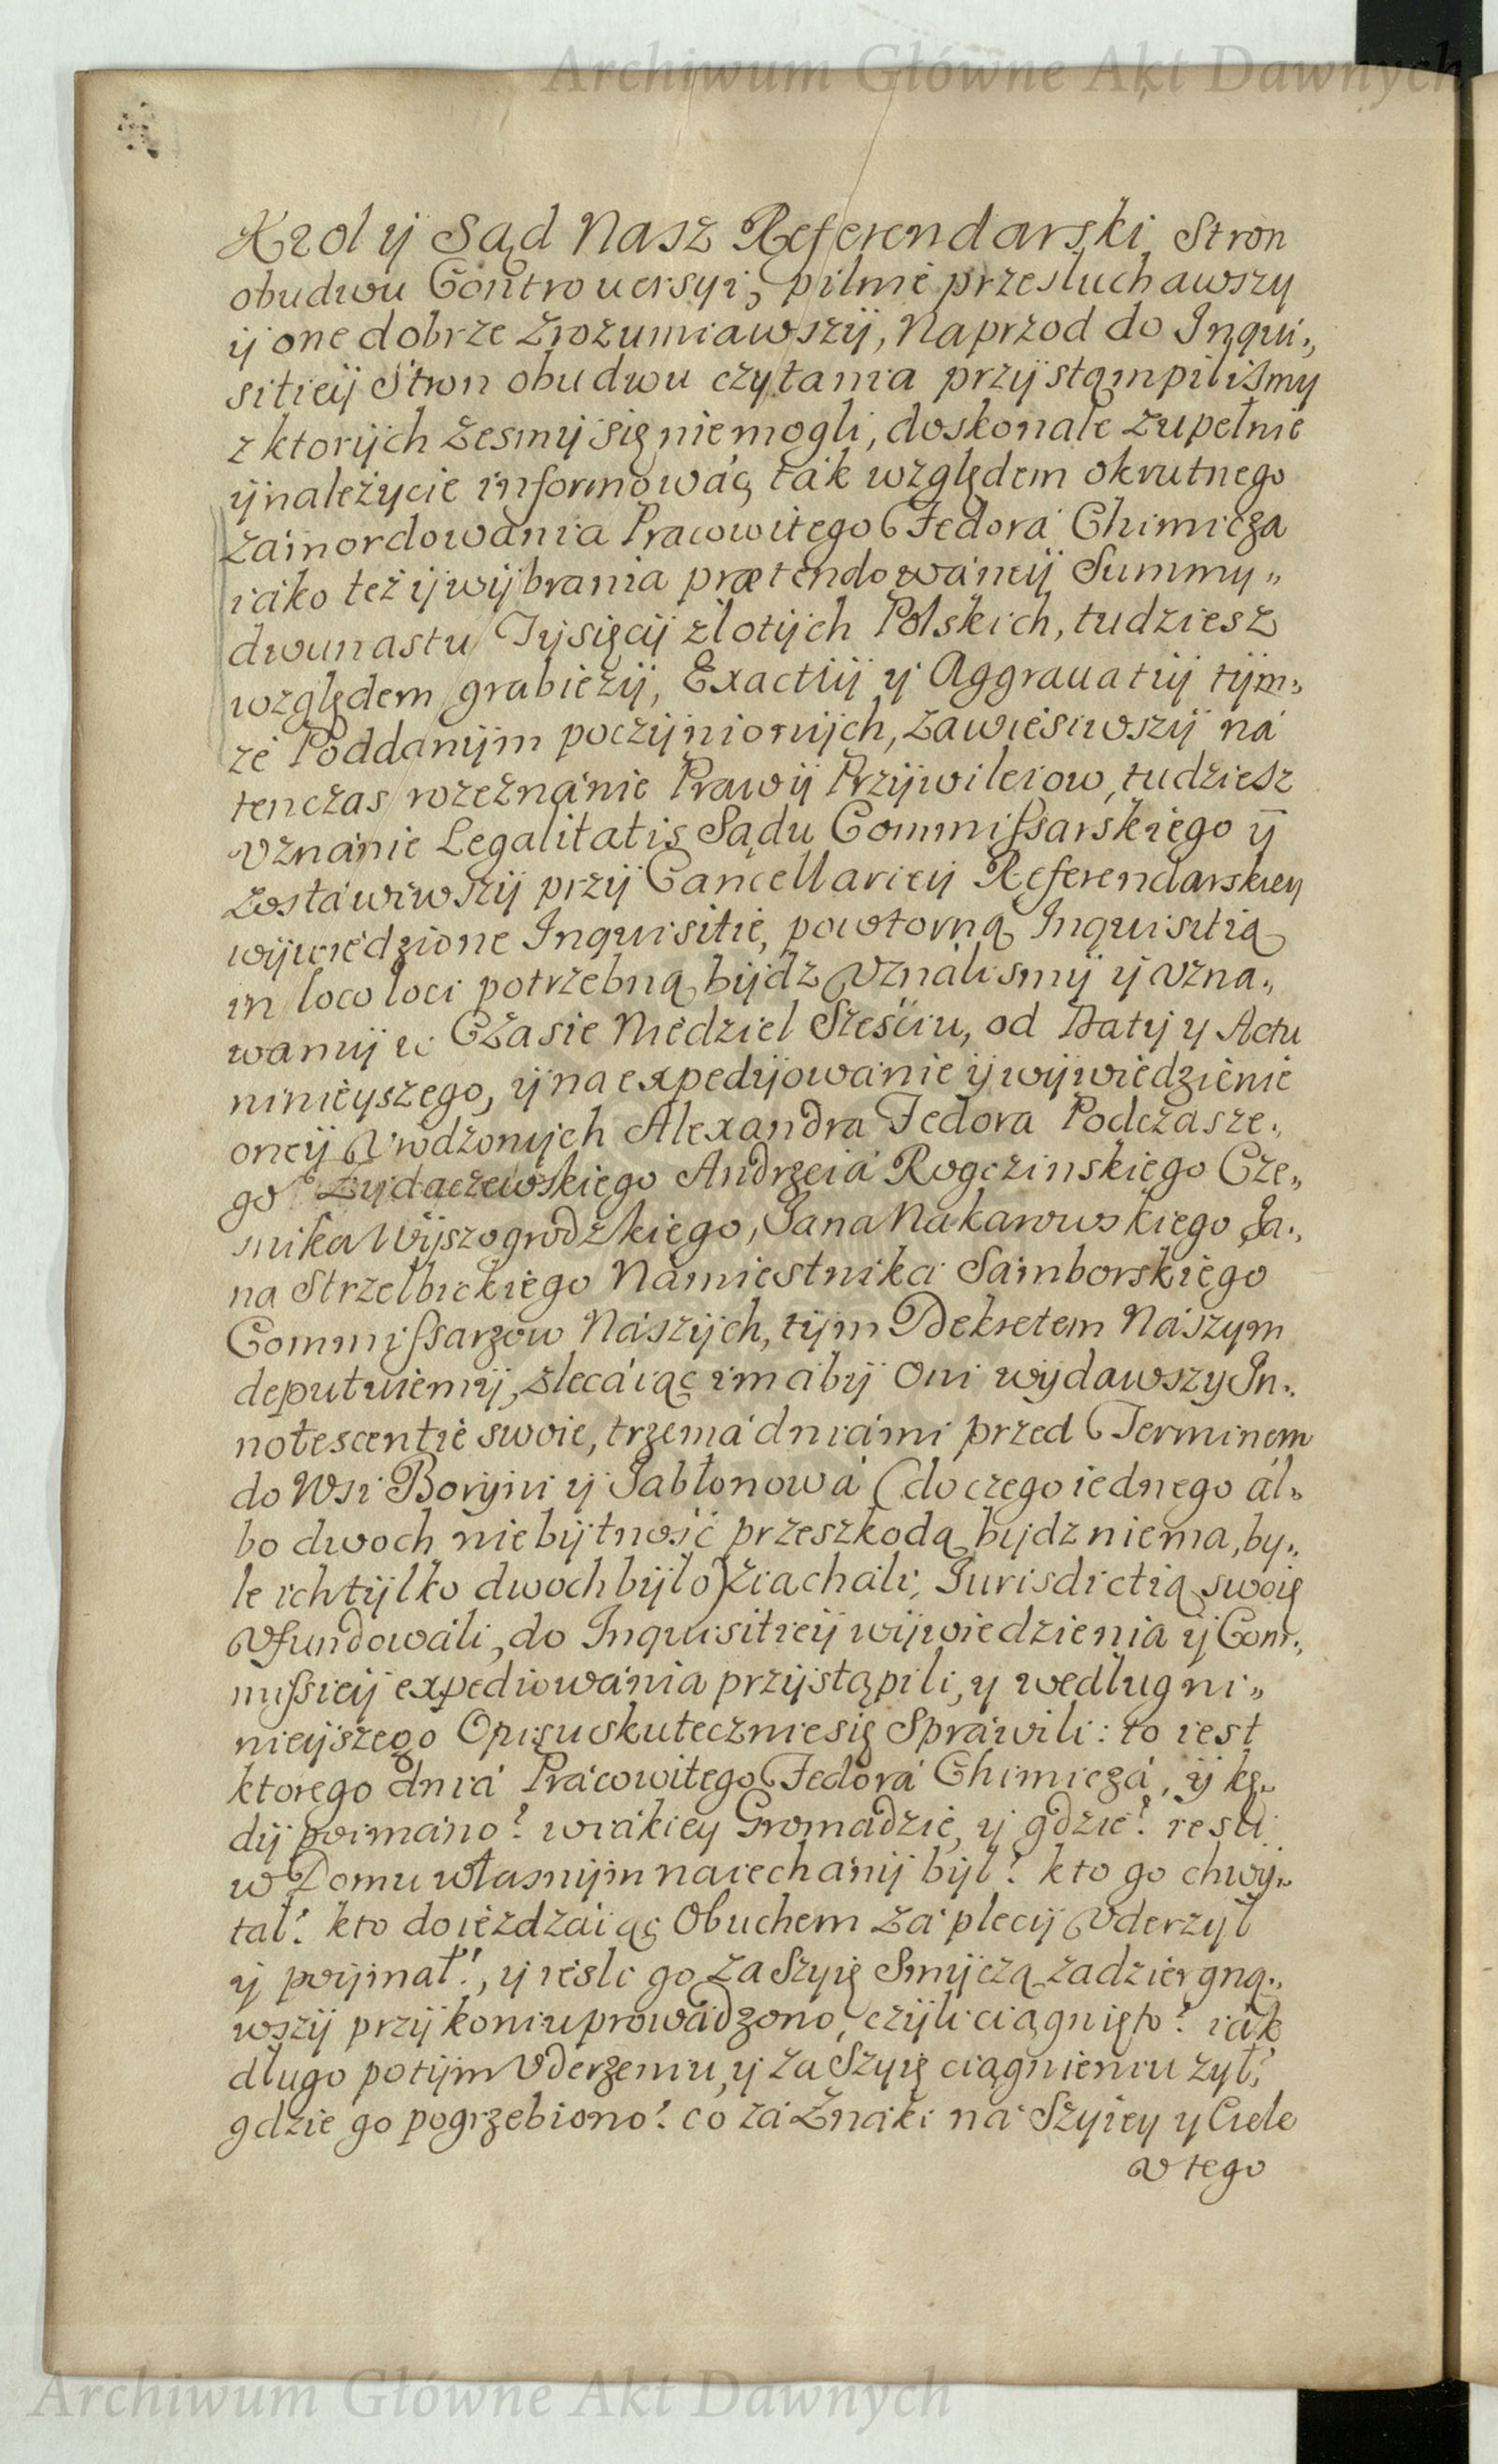 Archiwum Główne Akt Dawnych
Krol ÿ Sąd Nasz Referendarski Stron
obudwu Controuersyi, pilnie przesłuchawszy
ÿ one dobrze zrozumiawszÿ, Naprzod do Inqui„
siticiÿ Stron obudwu czytania przÿstąmpiliśmy
z ktorÿch żesmÿ się niemogli, doskonale zupełnie
ÿ należycie informować, tak względem okrutnego
zamordowania Pracowitego Fedora Chimicza
iáko też ÿ wÿbrania prætendowáneÿ Summy„
dwunastu Tÿsięcÿ złotÿch Polskich, tudziesz
względem grabieżÿ, Exactiÿ ÿ Aggrauatiÿ tÿm„
że Poddanÿm poczÿnionÿch, zawiesiwszÿ ná
tenczas rozeznánie Praw ÿ Przÿwileiow, tudziesz
Vznánie Legalitatis Sądu Commissarskiego ÿ
zostáwiwszÿ przÿ Cancellarieÿ Referendarskiey
wÿwiedzione Inquisitie, powtorną Inquisitią
in loco loci potrzebną bÿdz Vználismÿ ÿ Vzna„
wamÿ w Czasie Niedziel Sześciu, od Datÿ y Actu
ninieyszego, ÿ na expedÿowánie ÿ wÿwiedzienie
oneÿ Vrodzonÿch Alexandra Fedora Podczasze„
go Zÿdaczewskiego Andrzeiá Rogczinskiego Cze„
snika Wÿszogrodzkiego, Jana Nakarowskiego Ja„
na Strzelbickiego Námiestnika Samborskiego
Commissarzow Nászÿch, tÿm Dekretem Nászym
deputuiemÿ, zlecáiąc im abÿ Oni wydawszy In„
notescentie swoie, trzemá dniámi przed Terminem
do Wsi Borÿni ÿ Jabłonowá (do czego iednego ál„
bo dwoch niebÿtność przeszkodą bÿdz niema, by„
le ich tÿlko dwoch bÿło) ziachali, Jurisdictią swoię
Vfundowáli, do Inquisitieÿ wÿwiedzienia ÿ Com„
missieÿ expediowánia przÿstąpili, y według ni„
nieÿszego Opisu skutecznie się Spráwili: to iest
ktorego dniá Prácowitego Fedorá Chimiczá, ÿ kę„
dÿ poimáno? w iákiey Gromadzie, ÿ gdzie? iesli
w Domu własnÿm naiechánÿ bÿł? kto go chwÿ„
tał? kto doieżdżáiąc Obuchem zá plecÿ Vderzÿł
ÿ poÿmał?, ÿ iesli go za Szyię Smÿczą zadziergną„
wszÿ przÿ koniu prowádzono, czÿli ciągnięto? iák
długo potÿm Vderzeniu, ÿ za Szyię ciągnieniu żył?
gdzie go pogrzebiono? co zá Znáki ná Szyiey y Ciele
V tego
Archiwum Główne Akt Dawnych